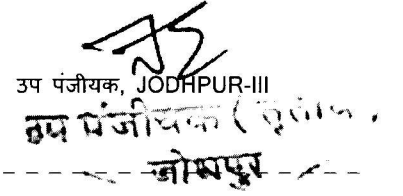 उप पंजीयक, JODHPUR-III
उप पंजीयक (तृतीय)
जोधपुर